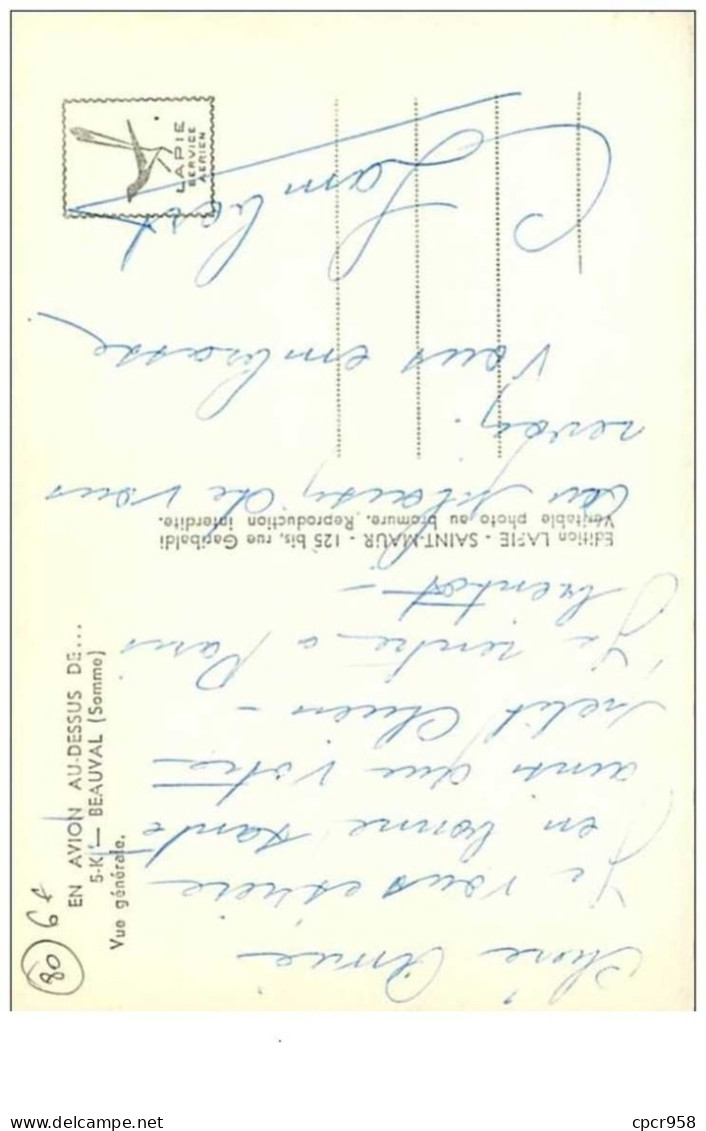 EN AVION AU-DESSUS DE...
5-K — BEAUVAL (Somme)
Vue générale.
LAPIE
SERVICE
AERIEN
Edition LAPIE - SAINT-MAUR - 125 bis, rue Garibaldi
Véritable photo au bromure. Reproduction interdite.
80
Chère Amie
Je vous espère
en bonne santé
ainsi que votre
petit Chien -
Je rentre a Paris
bientot -
au plaisir de vous
revoir.
Vous embrasse
cpcr958